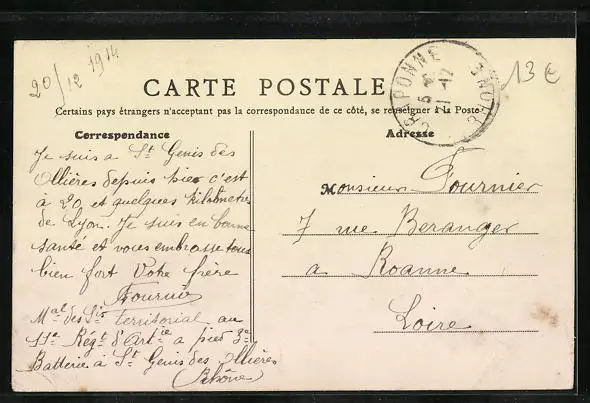 20/12 1914
13 €
CARTE POSTALE
Certains pays étrangers n'acceptant pas la correspondance de ce côté, se renseigner à la Poste
CRAPONNE RHONE
21-12
Correspondance
Adresse
Je suis a St Genis des
Ollières depuis hier c'est
à 20 et quelques kilometres
de Lyon. Je suis en bonne
santé et vous embrasse tous
bien fort Votre frère
Fournier
Mal des Lis territorial au
11e Régt d'Artie a pied 3e
Batterie à St Genis des Ollières
(Rhône)
Monsieur Fournier
7 rue Beranger
a Roanne
Loire